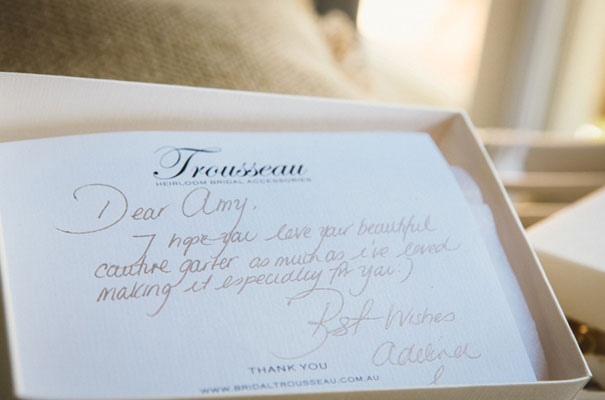 Trousseau
HEIRLOOM BRIDAL ACCESSORIES
Dear Amy,
I hope you love your beautiful
couture garter as much as i've loved
making it especially for you :)
Best Wishes
Adelina
THANK YOU
WWW.BRIDALTROUSSEAU.COM.AU